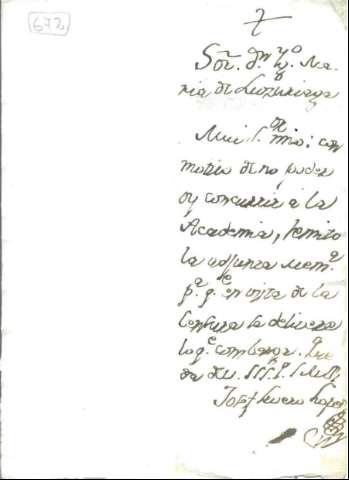 672
Sor. Dn. Ygo. Ma-
ria de Luzuriaga
Mui Sor. mio: con
motivo de no poder
oy concurrir a la
Academia, remito
la adjunta Mema.
pa. qe. en vista de la
Censura se delivere
lo qe. combenga.
Josef Severo Lopez